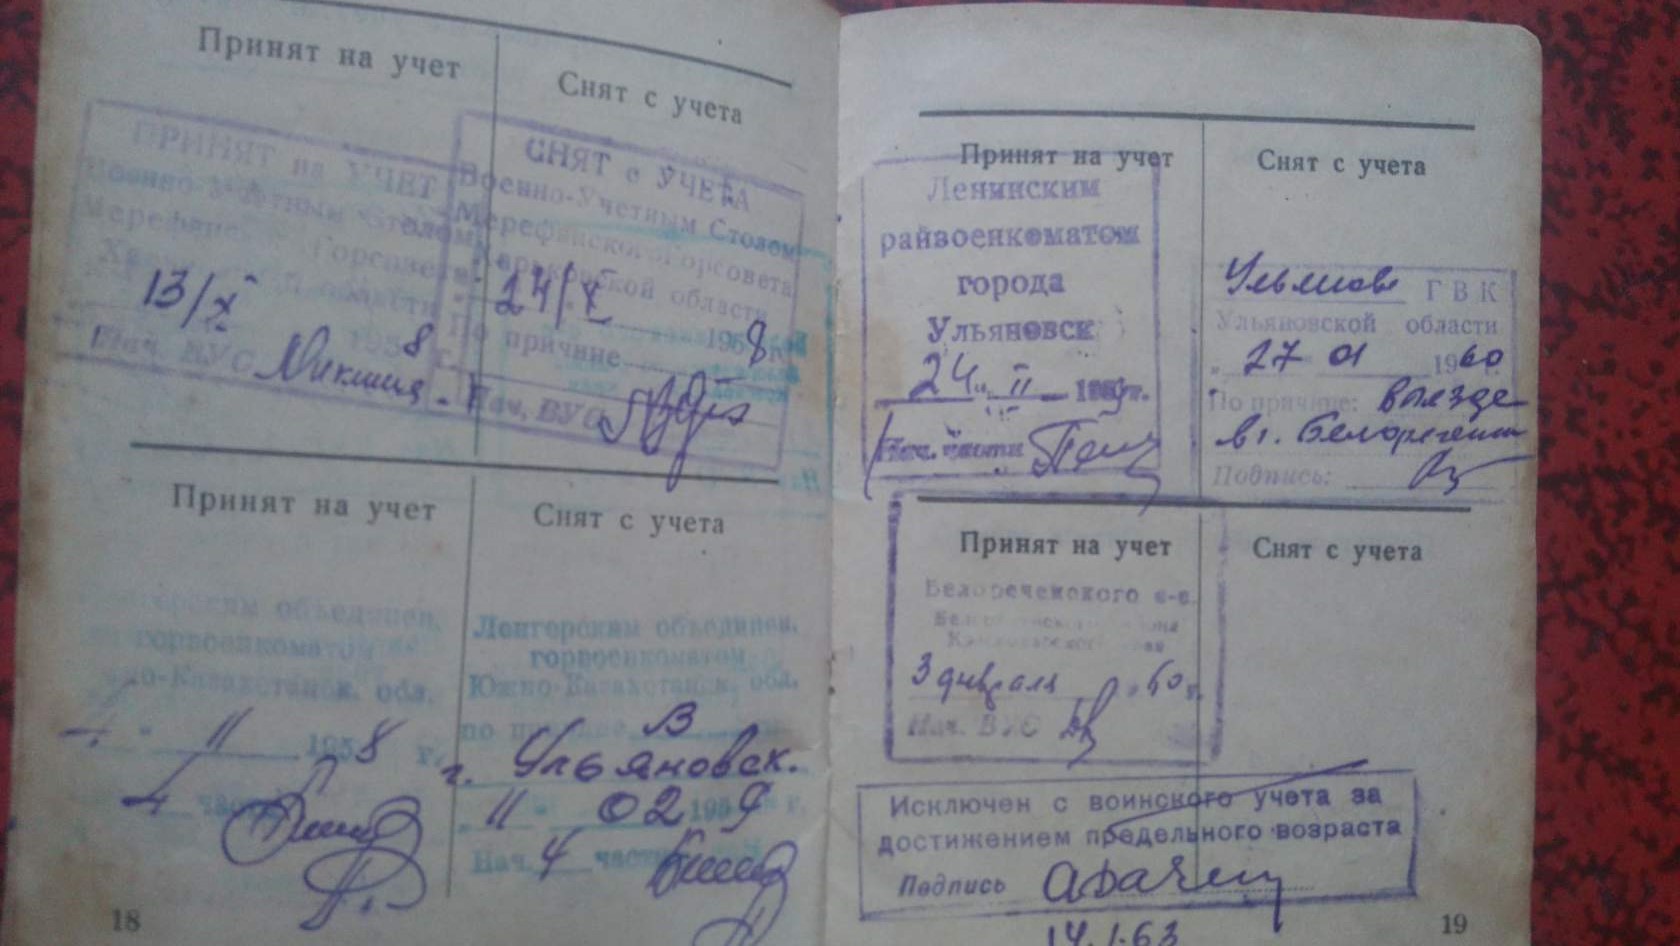 Принят на учет
Снят с учета
ПРИНЯТ на УЧЕТ
Военно-Учетным Столом
Мерефинского Горсовета
Харьковской области
13/X
8 г.
Нач. ВУС
СНЯТ с УЧЕТА
Военно-Учетным Столом
Мерефинского Горсовета
Харьковской области
24/X 1958 г.
По причине
Нач. ВУС
Принят на учет
Снят с учета
объединен.
горвоенкоматом
Южно-Казахстанск. обл.
4 " 11 1958 г.
4 части
Ленгерским объединен.
горвоенкоматом
Южно-Казахстанск. обл.
по причине В
г. Ульяновск.
11 " 02 1959 г.
Нач. 4 части
18
Принят на учет
Снят с учета
Ленинским
райвоенкоматом
города
Ульяновск
24 " II 1959 г.
Нач. части
Ульянов ГВК
Ульяновской области
" 27 01 1960
По причине: выезда
в г. Белоречен
Подпись:
Принят на учет
Снят с учета
Белореченского
3 февраля 60 г.
Нач. ВУС
Исключен с воинского учета за
достижением предельного возраста
Подпись
14.1.63
19